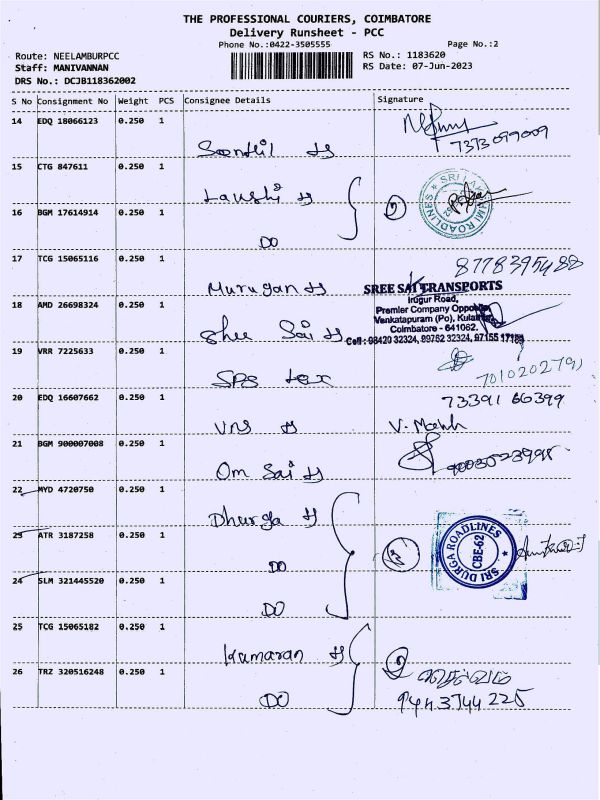 THE PROFESSIONAL COURIERS, COIMBATORE
Delivery Runsheet - PCC
Phone No.:0422-3505555
Page No.:2
Route: NEELAMBURPCC
Staff: MANIVANNAN
DRS No.: DCJB118362002
RS No.: 1183620
RS Date: 07-Jun-2023
S No Consignment No Weight PCS Consignee Details Signature
14 EDQ 18066123 0.250 1
7373099009
15 CTG 847611 0.250 1
SRI LAKSHMI ROADLINES
16 BGM 17614914 0.250 1 DO
17 TCG 15065116 0.250 1 Murugan
8778395488
18 AMD 26698324 0.250 1 Shee Sai
SREE SAI TRANSPORTS
Irugur Road,
Premier Company Opposite
Venkatapuram (Po),
Coimbatore - 641062.
Cell : 98420 32324, 99762 32324, 97155
19 VRR 7225633 0.250 1 SPS tex
20 EDQ 16607662 0.250 1 VNS
73391 66399
21 BGM 900007008 0.250 1 Om Sai
22 MYD 4720750 0.250 1 Dhurga
23 ATR 3187258 0.250 1 DO
SRI DURGA ROADLINES
CBE-62
24 SLM 321445520 0.250 1 DO
25 TCG 15065182 0.250 1 Kumaran
26 TRZ 320516248 0.250 1 DO
9443744225